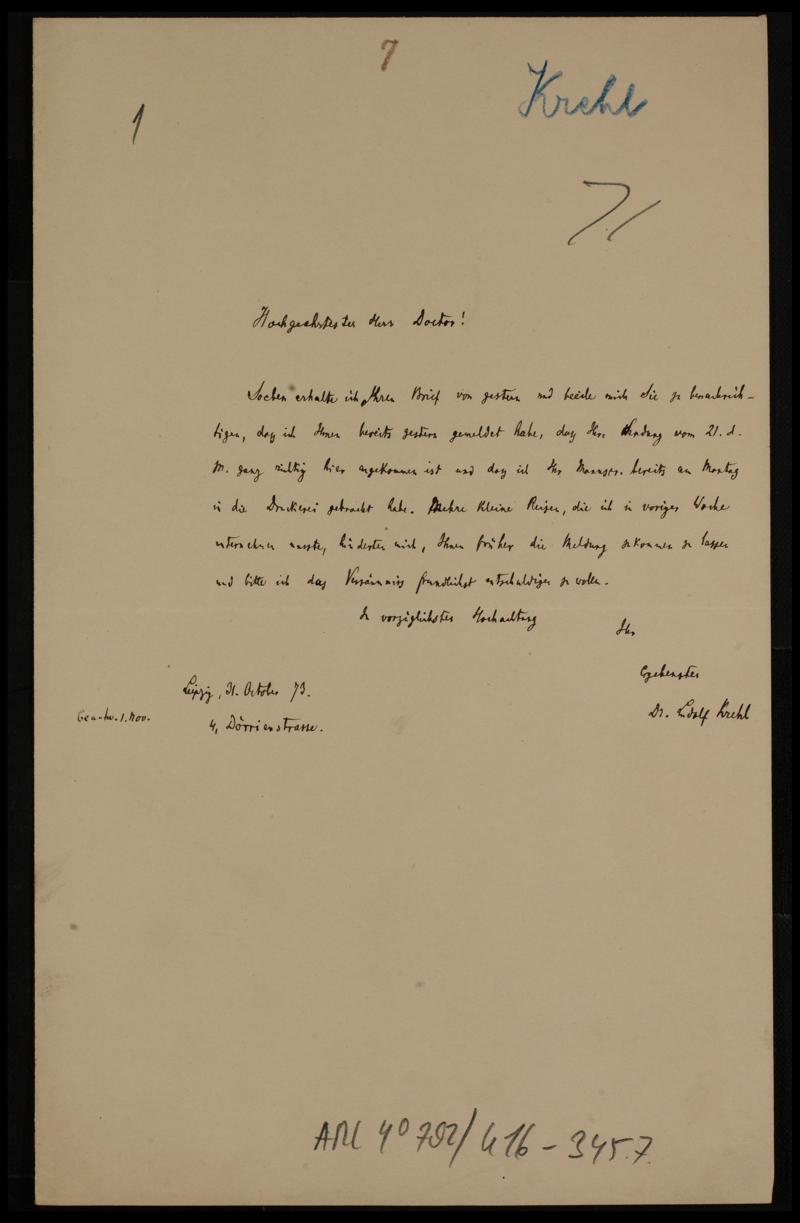 7
Krehl
1
Hochgeehrtester Herr Doctor!
Soeben erhalte ich Ihren Brief von gestern und beeile mich Sie zu benachrich-
tigen, daß ich Ihnen bereits gestern gemeldet habe, daß Ihre Sendung vom 21. d.
M. ganz richtig hier angekommen ist und daß ich Ihr Manuscr. bereits am Montag
in die Druckerei gebracht habe. Mehre kleine Reisen, die ich in voriger Woche
unternehmen musste, hinderten mich, Ihnen früher die Meldung zukommen zu lassen
und bitte ich das Versäumniss freundlichst entschuldigen zu wollen.
In vorzüglichster Hochachtung
Ihr
Ergebenster
Dr. Ludolf Krehl
Leipzig, 31. October 73.
4, Dörrienstrasse.
Beantw. 1. Nov.
4° 792/416-345.7.